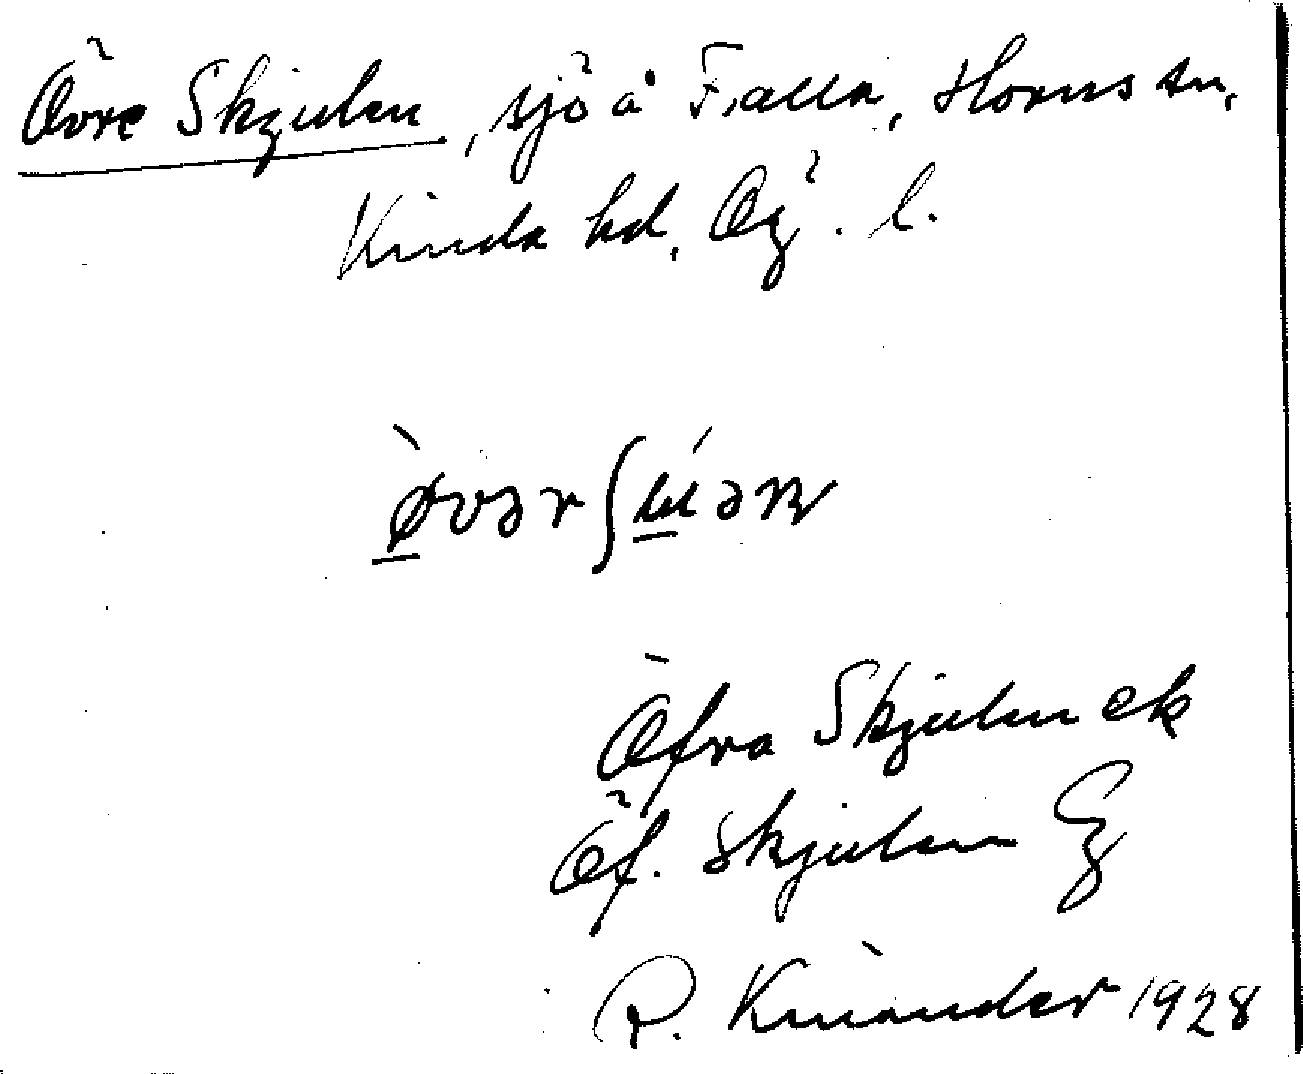 Övre Skjulen, sjö å Fralla, Horns sn,
Kinda hd, Ög. l.
Öfra Skjulen ek
Öf. Skjulen G
R. Kinander 1928